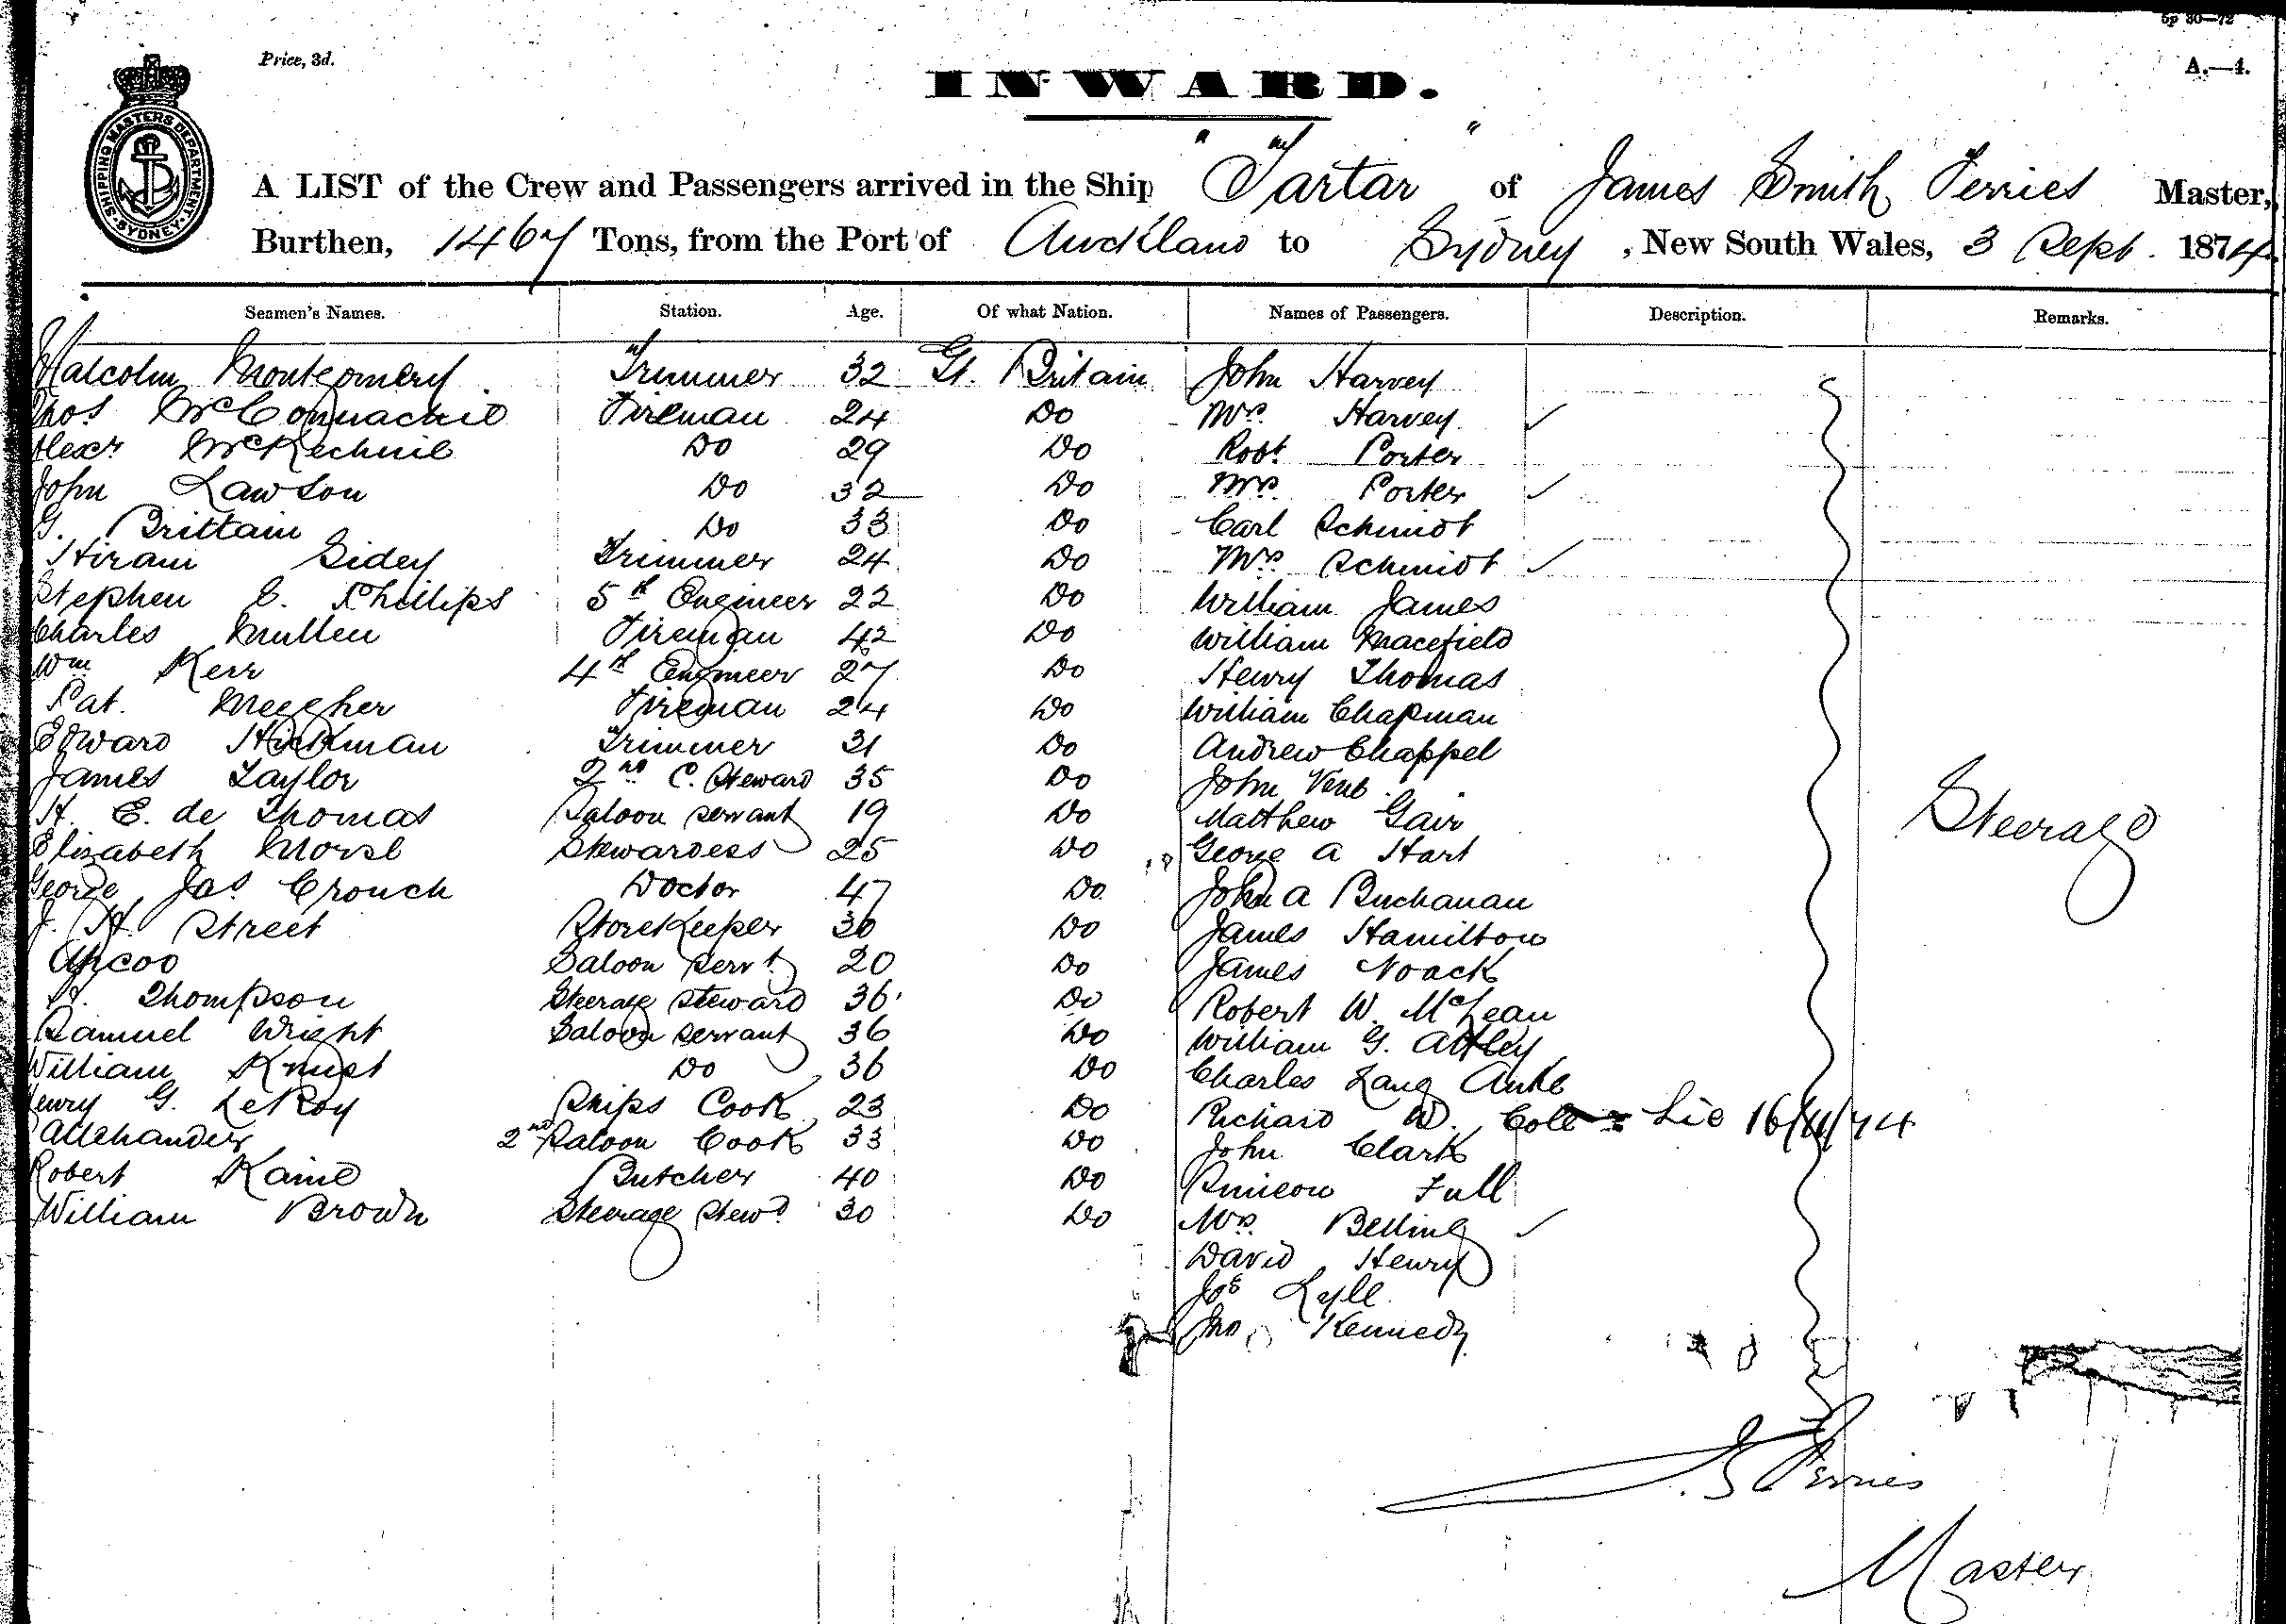 6p 30—72
Price, 3d.
A.—4.
INWARD.
SHIPPING MASTERS DEPARTMENT
SYDNEY
A LIST of the Crew and Passengers arrived in the Ship "Tartar" of James Smith Ferries Master,
Burthen, 1467 Tons, from the Port of Auckland to Sydney, New South Wales, 3 Sept. 1874
Seamen's Names. Station. Age. Of what Nation. Names of Passengers. Description. Remarks.
Malcolm Montgomery Trimmer 32 Gt. Britain John Harvey
Thos McConnachie Fireman 24 Do Mrs Harvey ✓
Alexr McKechnie Do 29 Do Robt Porter
John Lawson Do 32 Do Mrs Porter ✓
G. Brittain Do 33 Do Carl Schmidt
Hiram Sidey Trimmer 24 Do Mrs Schmidt ✓
Stephen E. Phillips 5th Engineer 22 Do William James
Charles Mullen Fireman 42 Do William Macefield
Wm Kerr 4th Engineer 27 Do Henry Thomas
Pat. Meegher Fireman 24 Do William Chapman
Edward Hickman Trimmer 31 Do Andrew Chappel
James Taylor 2nd C. Steward 35 Do John
H. E. de Thomas Saloon servant 19 Do Matthew Gair
Steerage
Elizabeth Morse Stewardess 25 Do George A Hart
George Jas Crouch Doctor 47 Do John A Buchanan
J. H. Street Storekeeper 30 Do James Hamilton
Apcoo Saloon servt 20 Do James Noack
Thompson Steerage Steward 36 Do Robert W. McLean
Samuel Wright Saloon servant 36 Do William G. Attley
William Do 36 Do Charles Lang
Henry G. LeRoy Ships Cook 23 Do Richard W. Cole Lic 16/11/74
2nd Saloon Cook 33 Do John Clark
Robert Kaine Butcher 40 Do Simeon Full
William Brown Steerage Stewd 30 Do Mrs Belling ✓
David Henry
Jos Lyle
Jno Kennedy
J S Ferries
Master